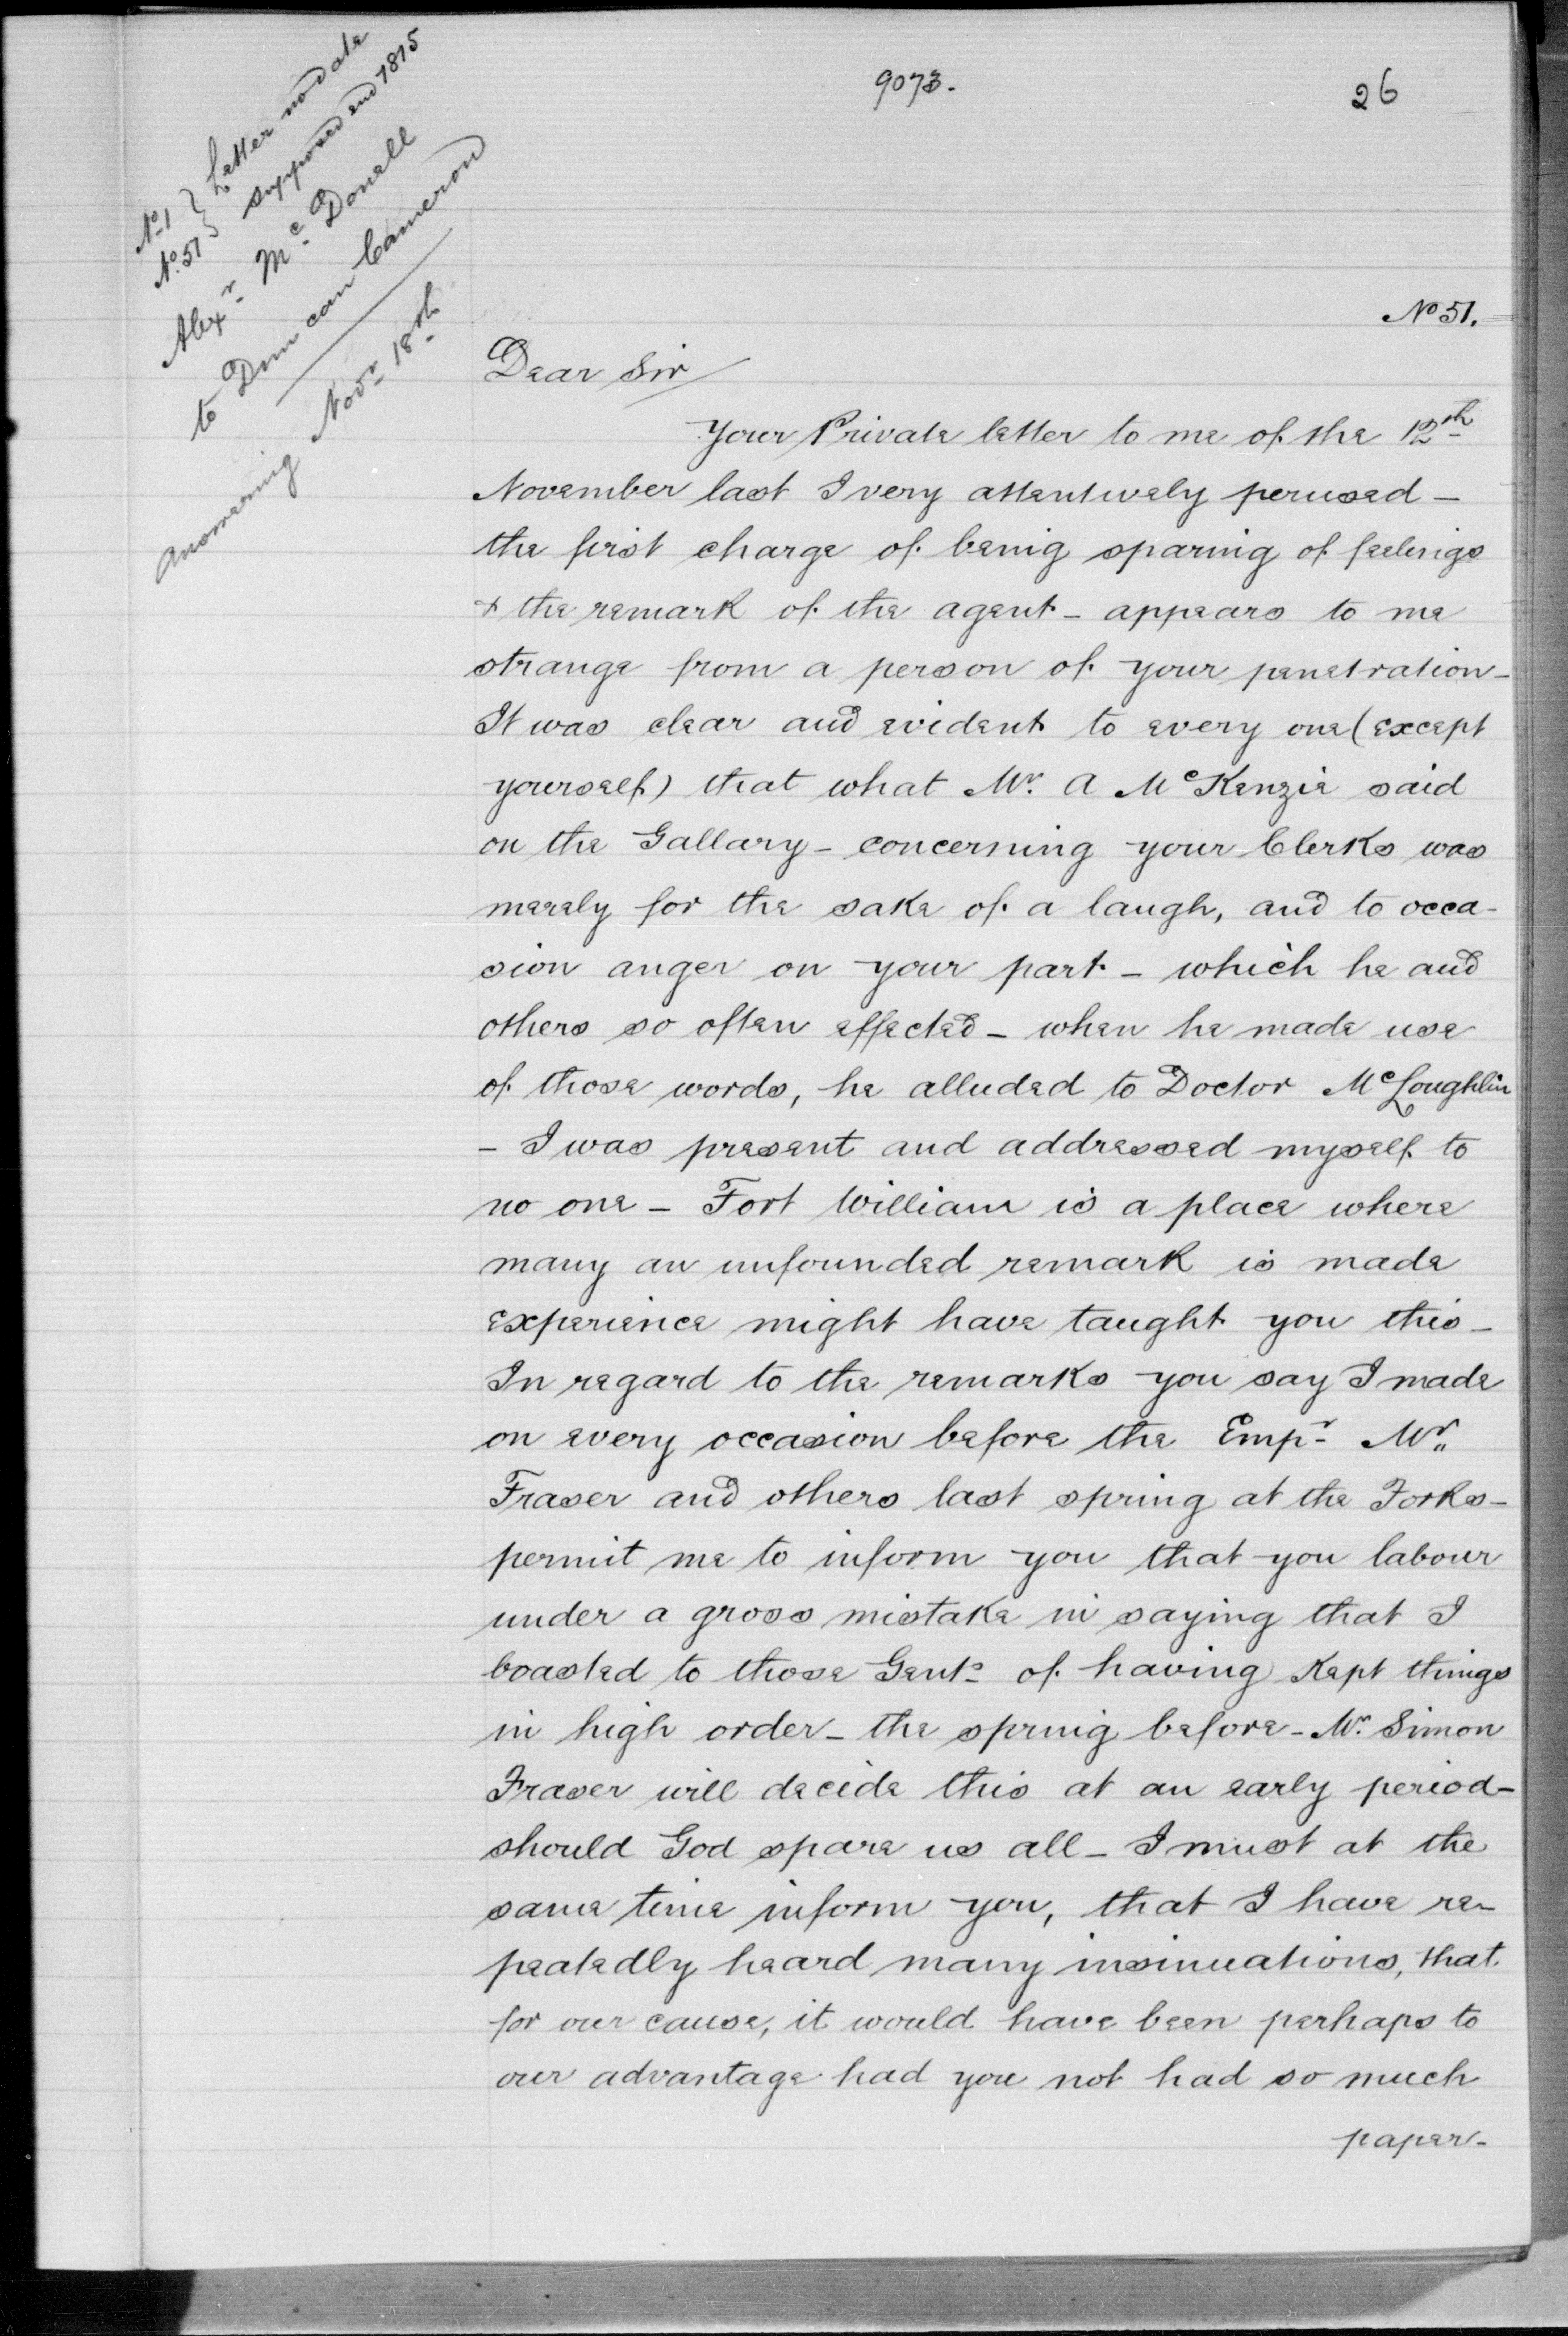 9073.
26
No 1 } Letter no date
No. 51 } supposed end 1815
Alexr McDonell
to Duncan Cameron
answering Novr 18th
No 51.
Dear Sir
Your Private letter to me of the 12th
November last I very attentively perused –
the first charge of being sparing of feelings
& the remark of the agent – appears to me
strange from a person of your penetration –
It was clear and evident to every one (except
yourself) that what Mr. A McKenzie said
on the Gallary – concerning your Clerks was
merely for the sake of a laugh, and to occa-
sion anger on your part – which he and
others so often effected – when he made use
of those words, he alluded to Doctor McLoughlin
– I was present and addressed myself to
no one – Fort William is a place where
many an unfounded remark is made
experience might have taught you this –
In regard to the remarks you say I made
on every occasion before the Empr Mr.
Fraser and others last spring at the Forks –
permit me to inform you that you labour
under a gross mistake in saying that I
boasted to those Gents of having Kept things
in high order – the spring before – Mr. Simon
Fraser will decide this at an early period –
should God spare us all – I must at the
same time inform you, that I have re-
peatedly heard many insinuations, that
for our cause, it would have been perhaps to
our advantage had you not had so much
paper –